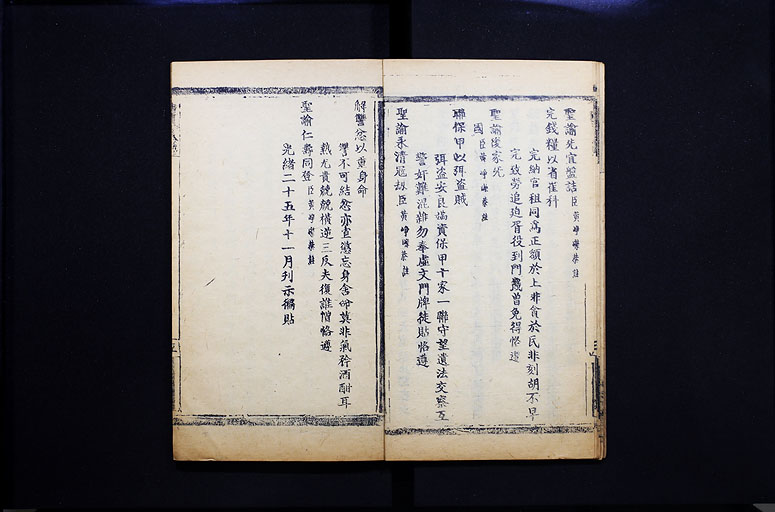 聖諭先宜盤詰臣黃崢嶸恭註
完錢糧以省催科
完納官租同為正額於上非貪於民非刻胡不早
完致勞追迫胥役到門幾曾免得恪遵
聖諭後家先
國臣黃崢嶸恭註
聯保甲以弭盜賊
弭盜安良端責保甲十家一聯守望遺法交察互
警奸難混雜勿奉虛文門牌徒貼恪遵
聖諭永清冠 臣黃崢嶸恭註
解讐忿以重身命
讐不可結忿亦宜懲忘身舍命莫非氣矜酒酣耳
熱尤貴兢兢橫逆三反夫復誰憎恪遵
聖諭仁壽同登臣黃崢嶸恭註
光緒二十五年十一月刊示徧貼